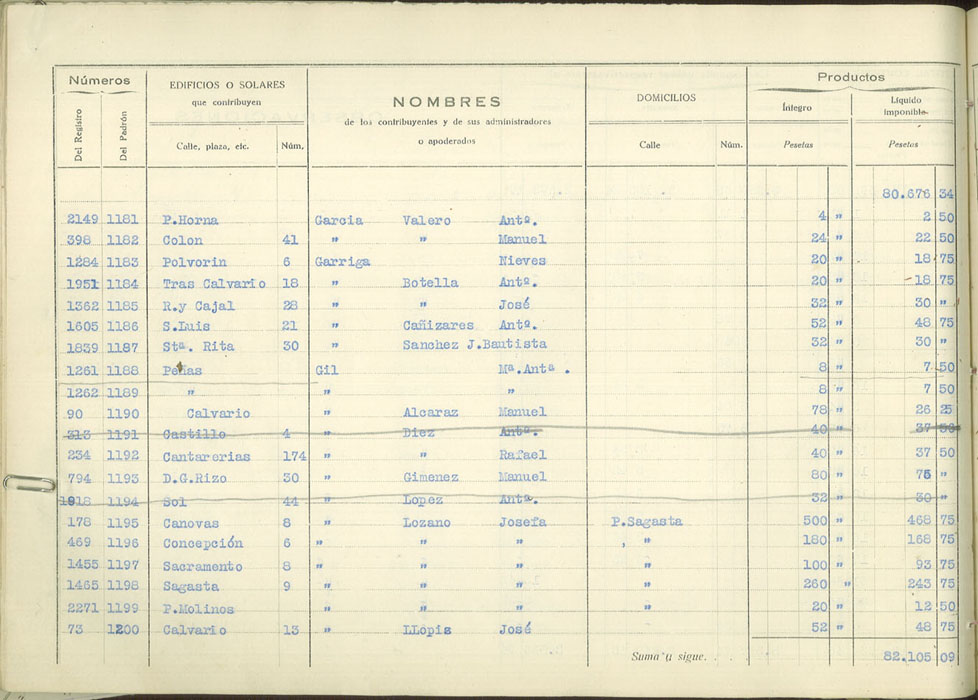 Números EDIFICIOS O SOLARES que contribuyen NOMBRES de los contribuyentes y de sus administradores o apoderados DOMICILIOS Productos
Del Registro Del Padrón Calle, plaza, etc. Núm. Calle Núm. Íntegro Pesetas Líquido imponible Pesetas
80.676 34
2149 1181 P.Horna Garcia Valero Antº. 4 " 2 50
398 1182 Colon 41 " " Manuel 24 " 22 50
1284 1183 Polvorin 6 Garriga Nieves 20 " 18 75
1951 1184 Tras Calvario 18 " Botella Antº. 20 " 18 75
1362 1185 R.y Cajal 28 " " José 32 " 30 "
1605 1186 S.Luis 21 " Cañizares Antº. 52 " 48 75
1839 1187 Stª. Rita 30 " Sanchez J.Bautista 32 " 30 "
1261 1188 Peñas Gil Mª.Antª . 8 " 7 50
1262 1189 " " " 8 " 7 50
90 1190 Calvario " Alcaraz Manuel 78 " 26 25
313 1191 Castillo 4 " Diez Antº. 40 " 37 50
234 1192 Cantarerias 174 " " Rafael 40 " 37 50
794 1193 D.G.Rizo 30 " Gimenez Manuel 80 " 75 "
1918 1194 Sol 44 " Lopez Antª. 32 " 30 "
178 1195 Canovas 8 " Lozano Josefa P.Sagasta 500 " 468 75
469 1196 Concepción 6 " " " , " 180 " 168 75
1455 1197 Sacramento 8 " " " " 100 " 93 75
1465 1198 Sagasta 9 " " " " 260 " 243 75
2271 1199 P.Molinos " " " " 20 " 12 50
73 1200 Calvario 13 " LLopis José 52 " 48 75
Suma y sigue. . . . 82.105 09